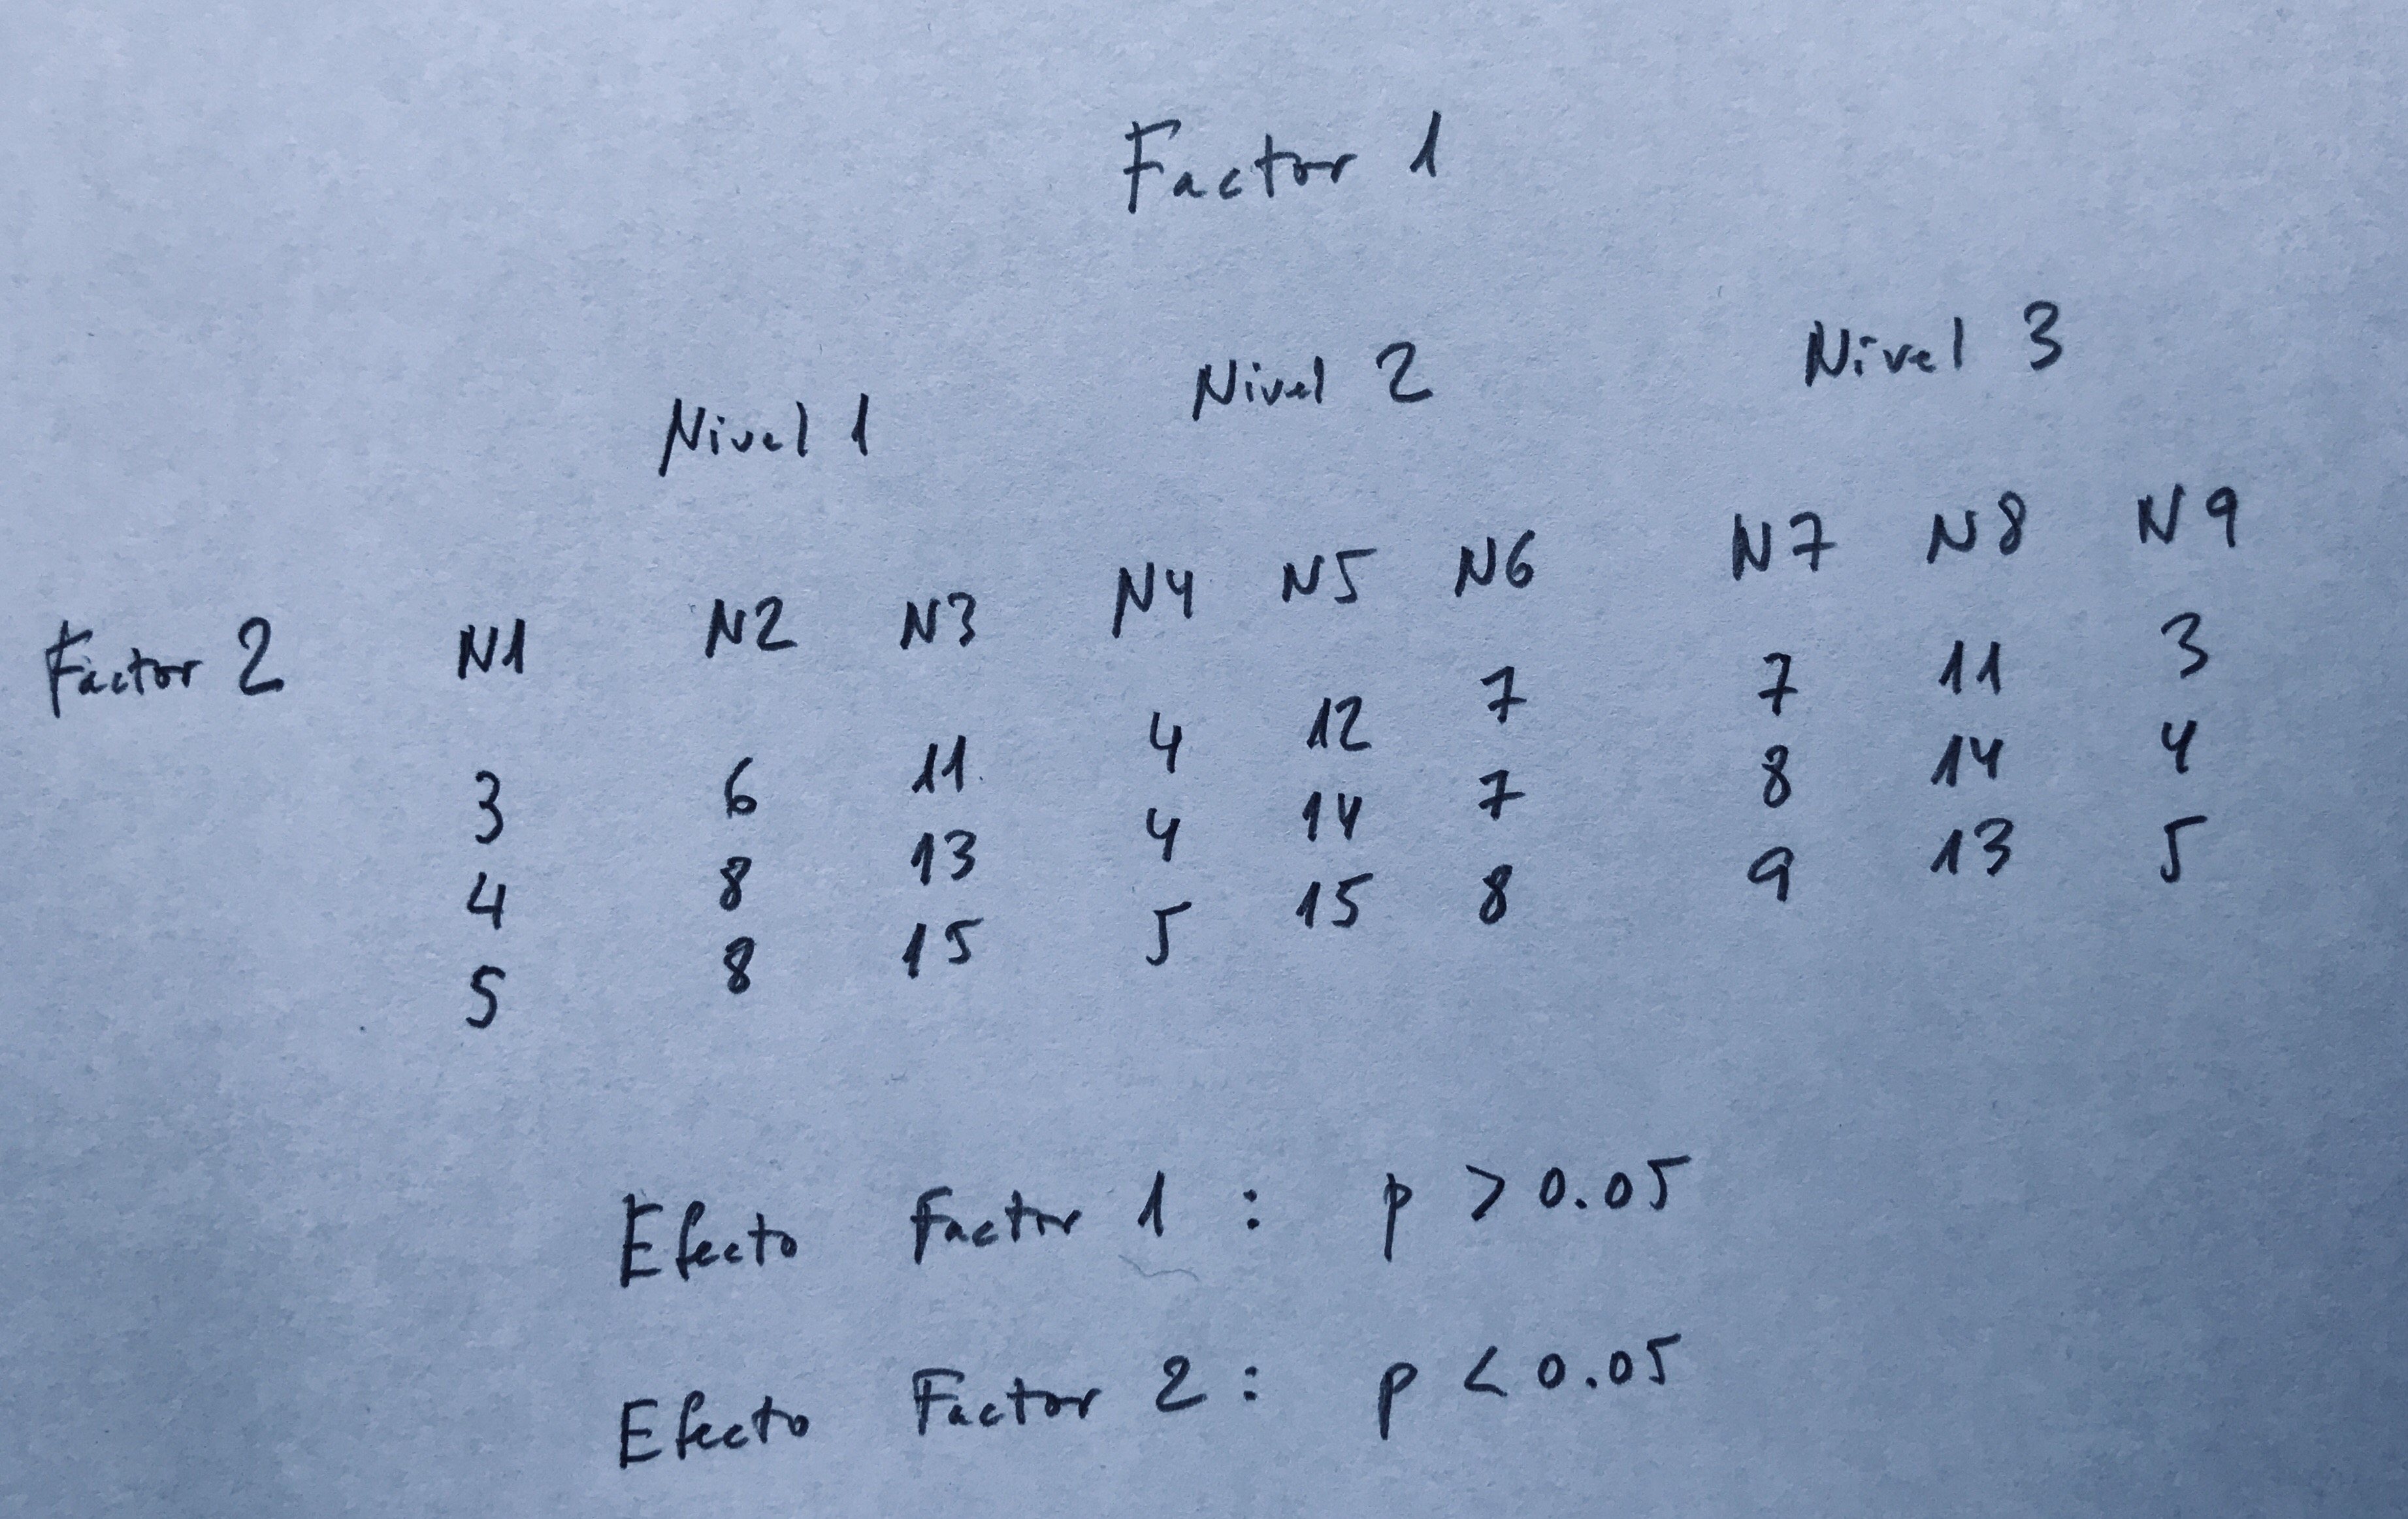 Factor 1
Nivel 1 Nivel 2 Nivel 3
Factor 2 N1 N2 N3 N4 N5 N6 N7 N8 N9
3 6 11 4 12 7 7 11 3
4 8 13 4 14 7 8 14 4
5 8 15 5 15 8 9 13 5
Efecto Factor 1 : p > 0.05
Efecto Factor 2 : p < 0.05